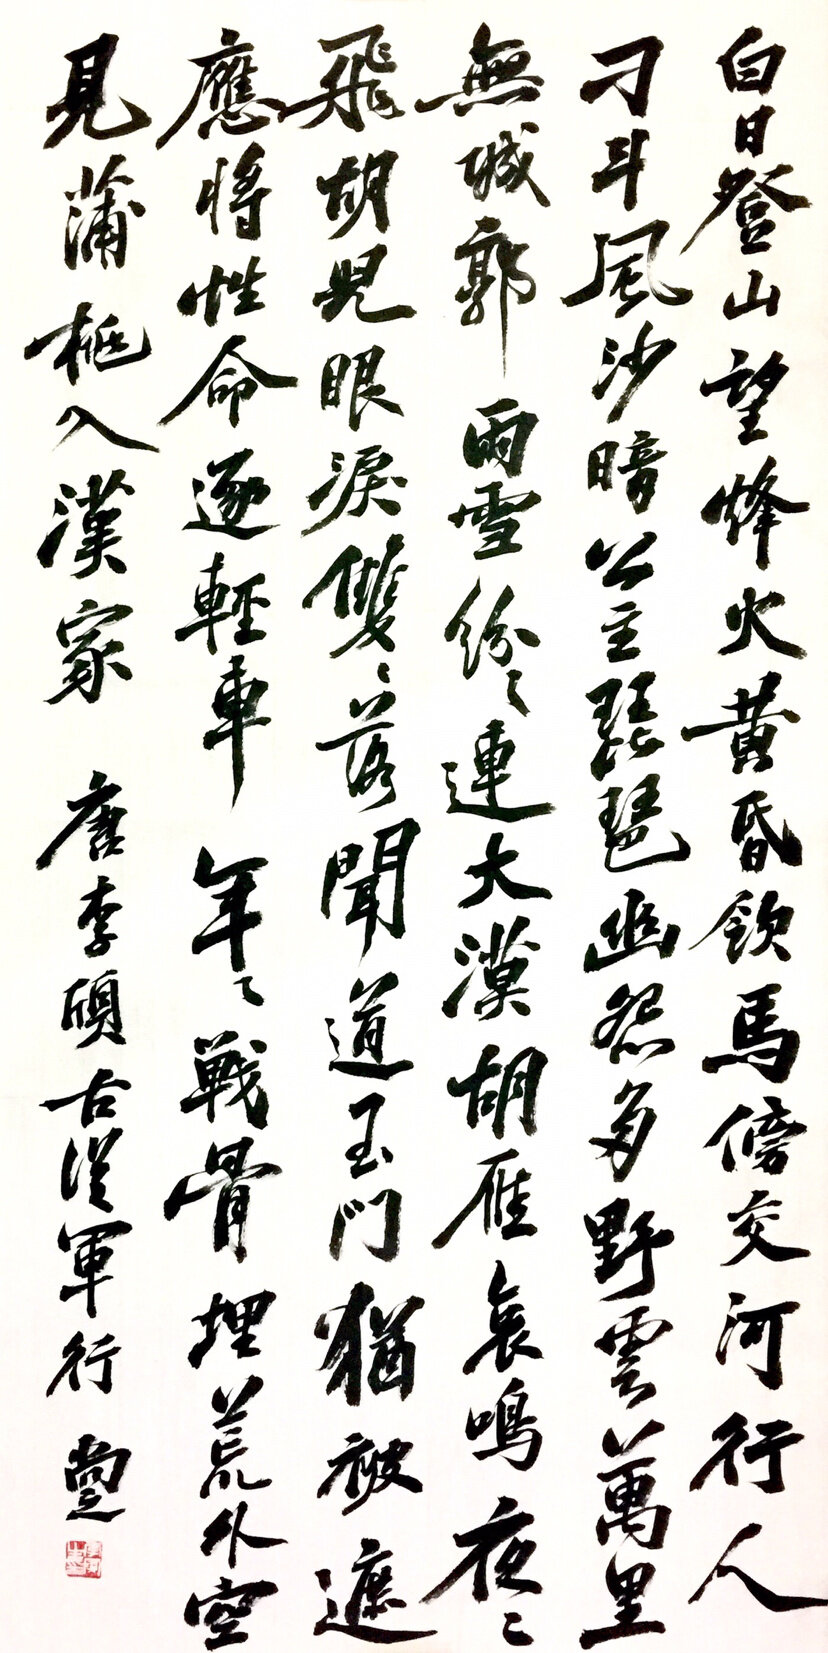 白日登山望烽火黄昏飲馬傍交河行人
刁斗風沙暗公主琵琶幽怨多野雲萬里
無城郭雨雪紛〻連大漠胡雁哀鳴夜〻
飛胡兒眼淚雙〻落聞道玉門猶被遮
應將性命逐輕車年〻戰骨埋荒外空
見蒲桃入漢家 唐李頎古從軍行